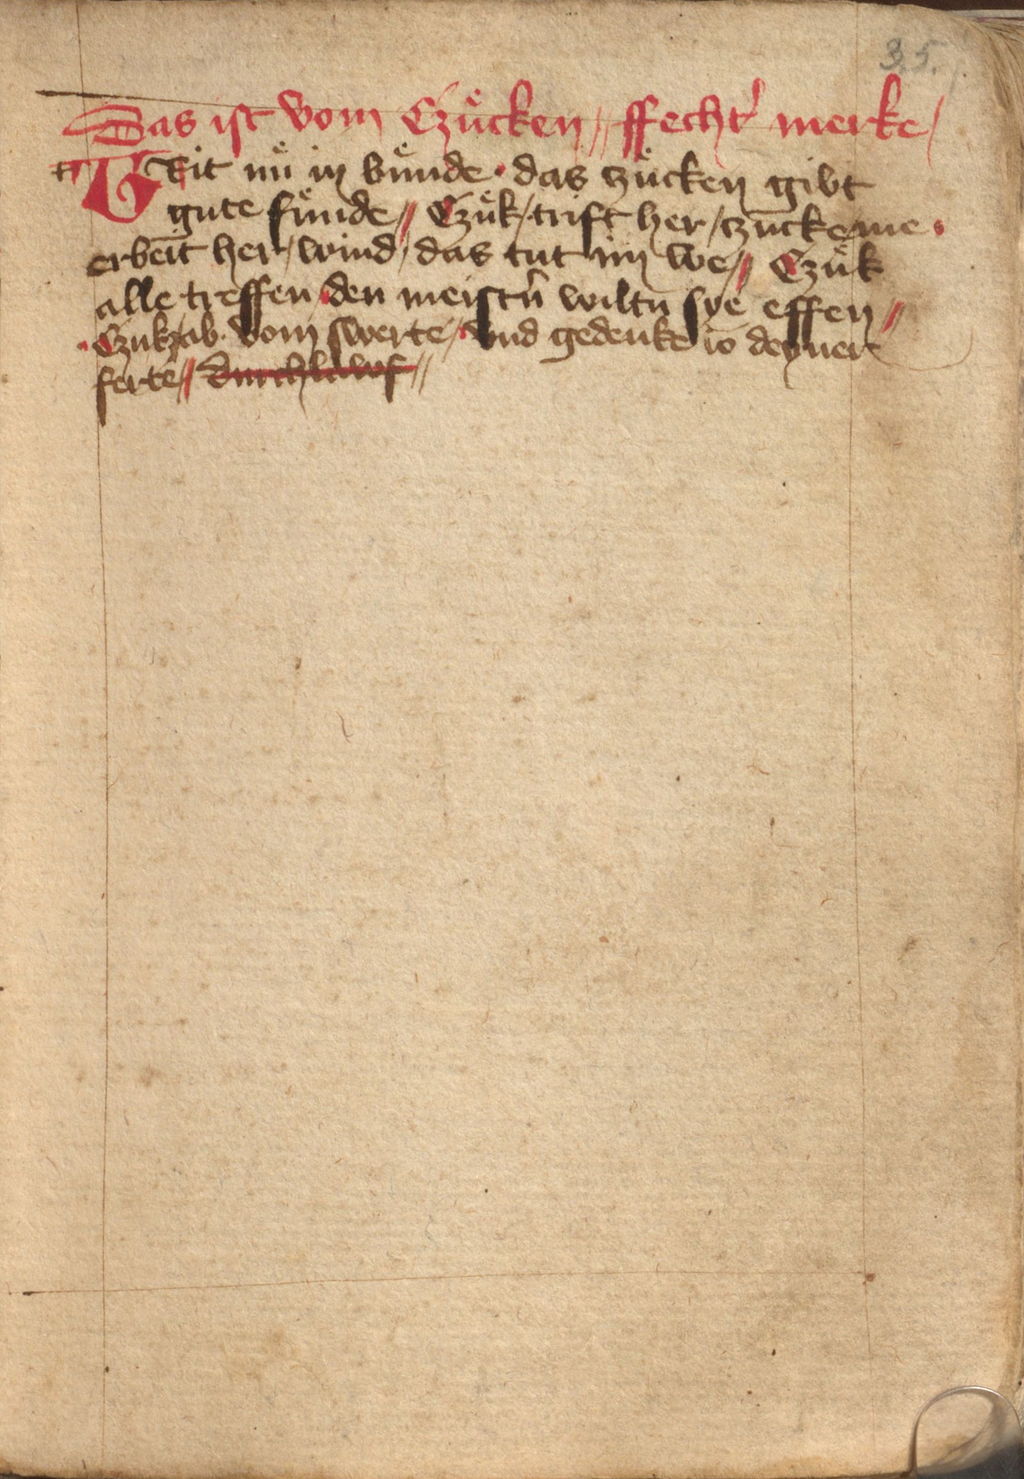 35.
Das ist vom Czücken // ffechtˀ merke /
Trit nü in bünde · das zücken gibt
gute fünde // Czük / trift her / zucke me ·
erbeit her / wind / das tut im we // Czük
alle treffen den meistˀn wiltu sye effen //
· Czuk ab · vom swerte / vnd gedenke io deyner
ferte // durchlawf //